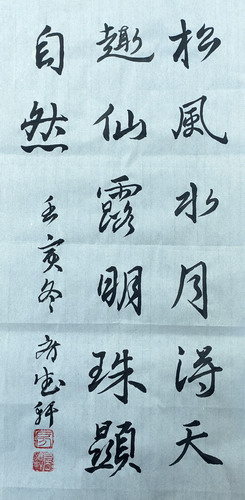 松風水月得天
趣仙露明珠顯
自然
壬寅冬